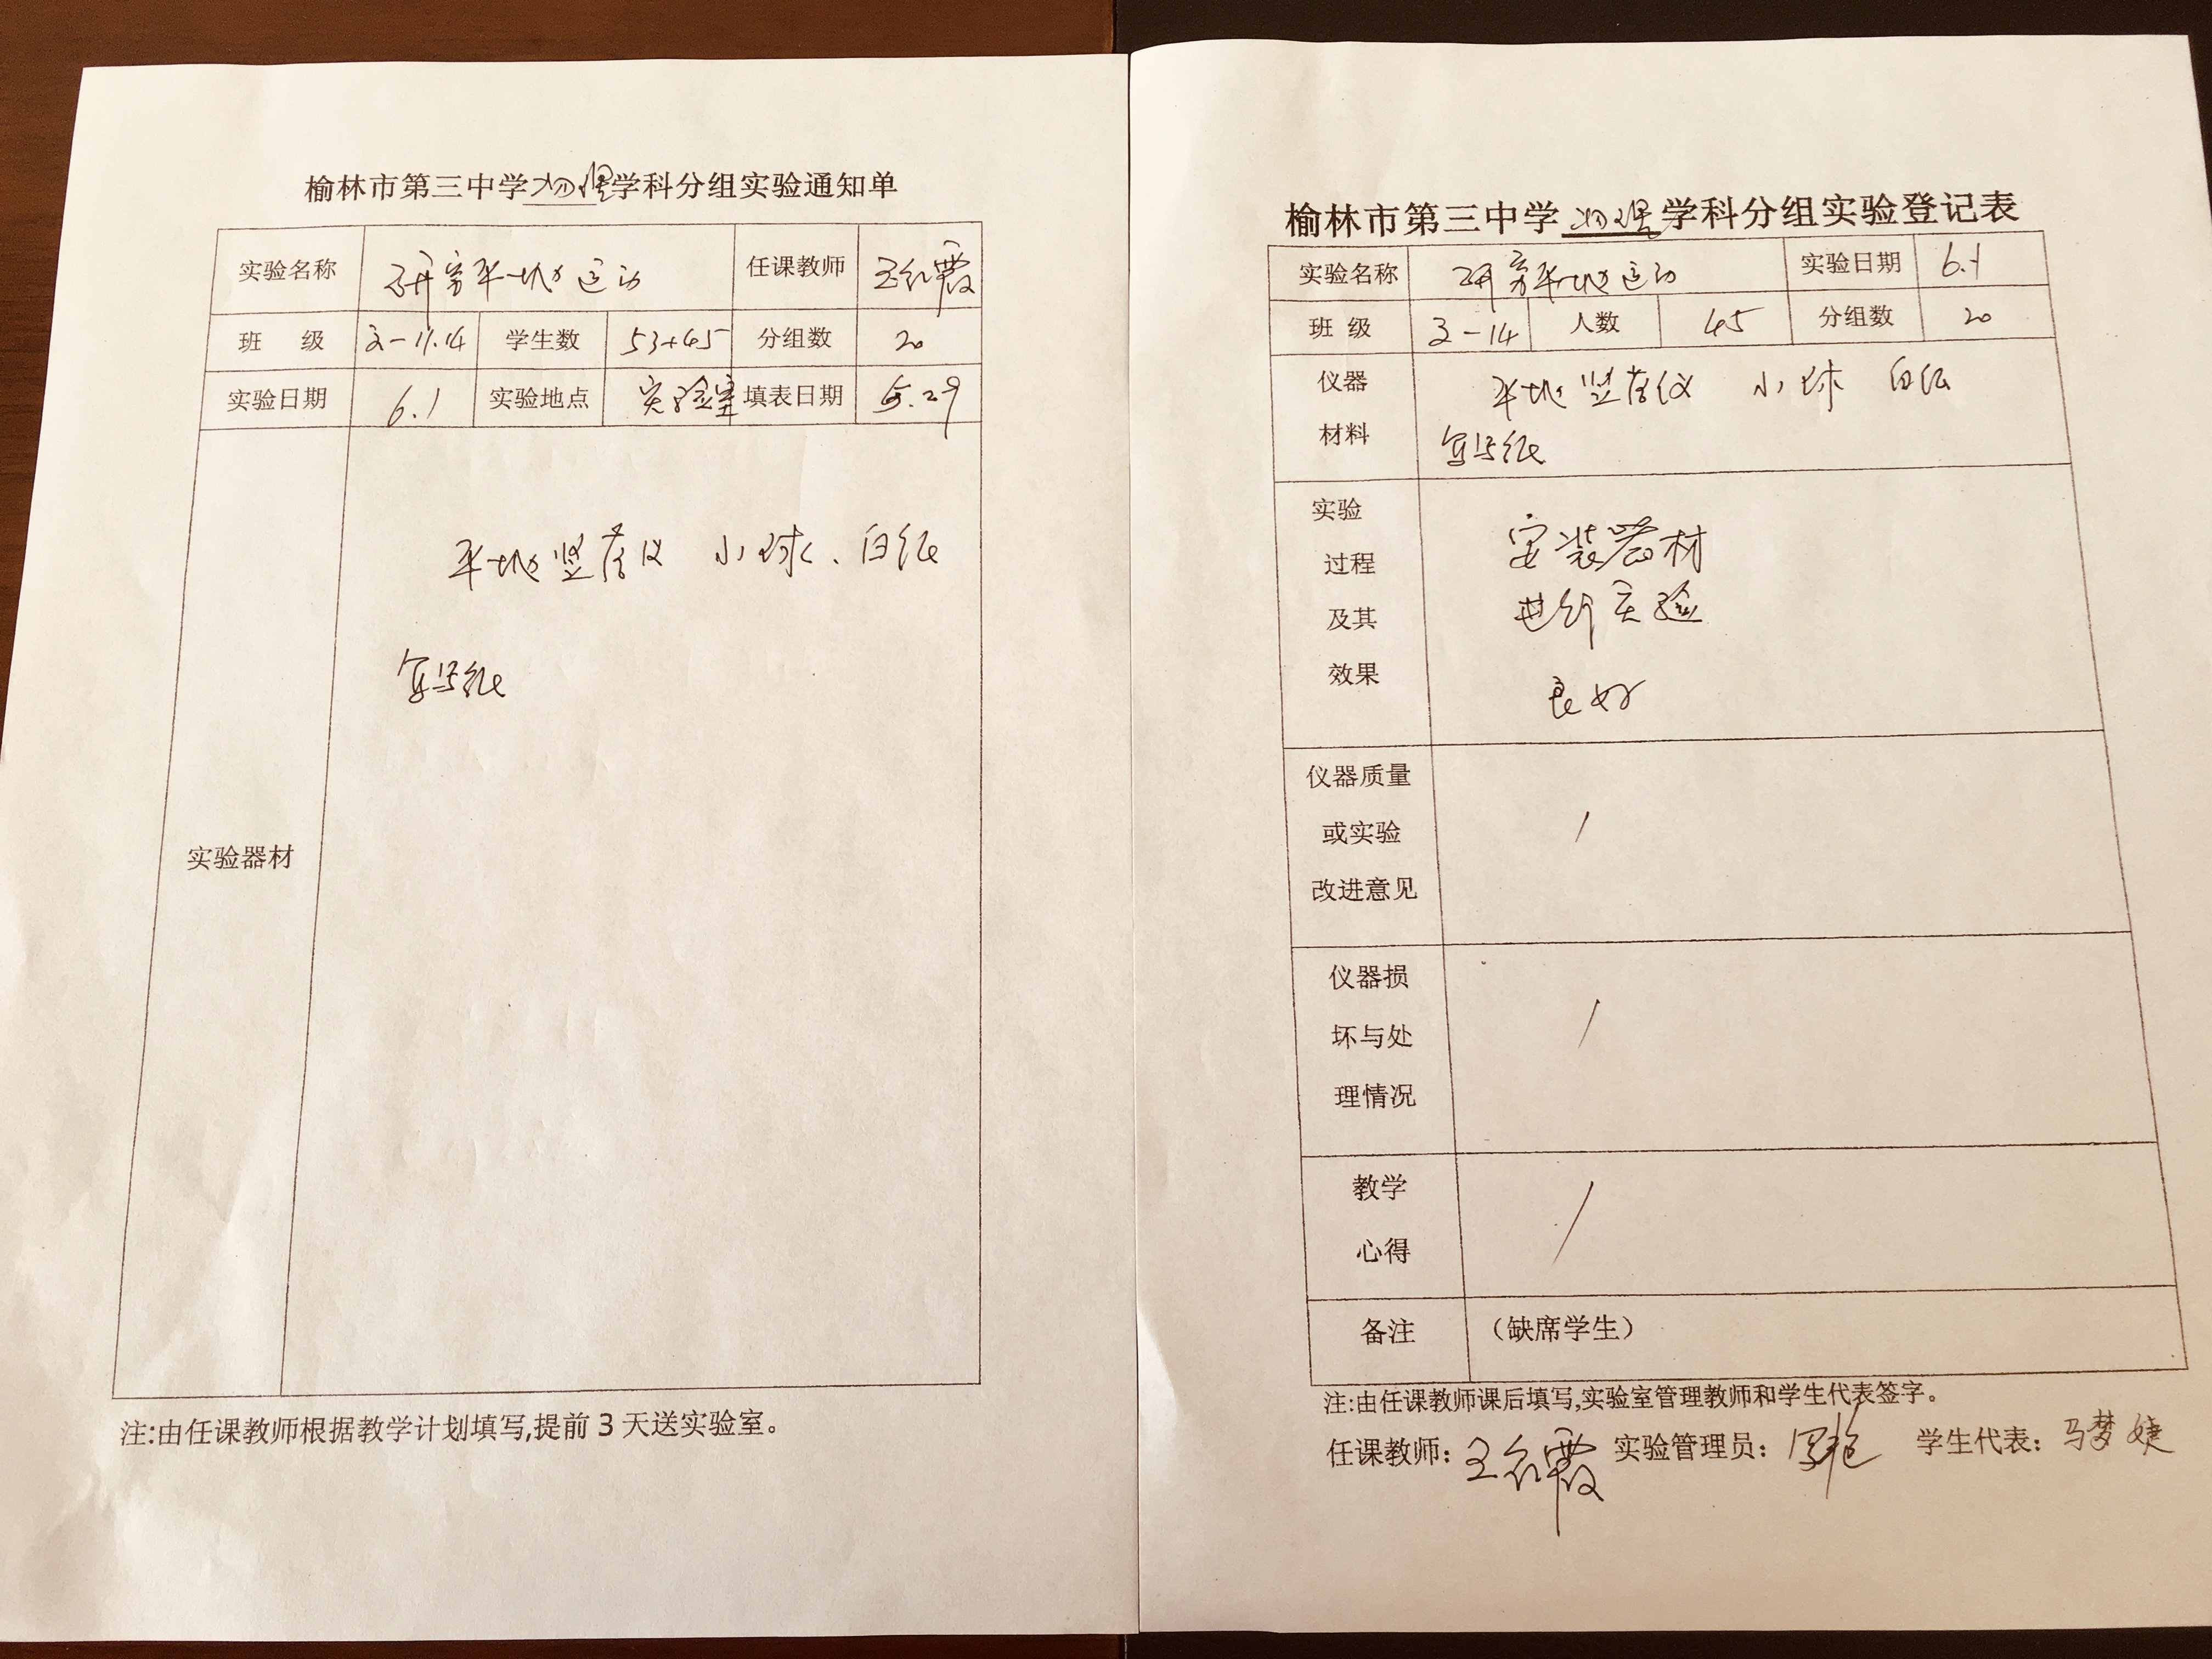 榆林市第三中学物理学科分组实验通知单
实验名称 研究平抛运动 任课教师 王红霞
班 级 2-11.14 学生数 53+45 分组数 20
实验日期 6.1 实验地点 实验室 填表日期 5.29
实验器材
平抛竖落仪 小球、白纸
复写纸
注:由任课教师根据教学计划填写,提前3天送实验室。
榆林市第三中学物理学科分组实验登记表
实验名称 研究平抛运动 实验日期 6.1
班 级 2-14 人数 45 分组数 20
仪器
材料
平抛竖落仪 小球 白纸
复写纸
实验
过程
及其
效果
安装器材
进行实验
良好
仪器质量
或实验
改进意见
/
仪器损
坏与处
理情况
/
教学
心得
/
备注 (缺席学生)
注:由任课教师课后填写,实验室管理教师和学生代表签字。
任课教师: 王红霞 实验管理员: 学生代表: 马梦婕